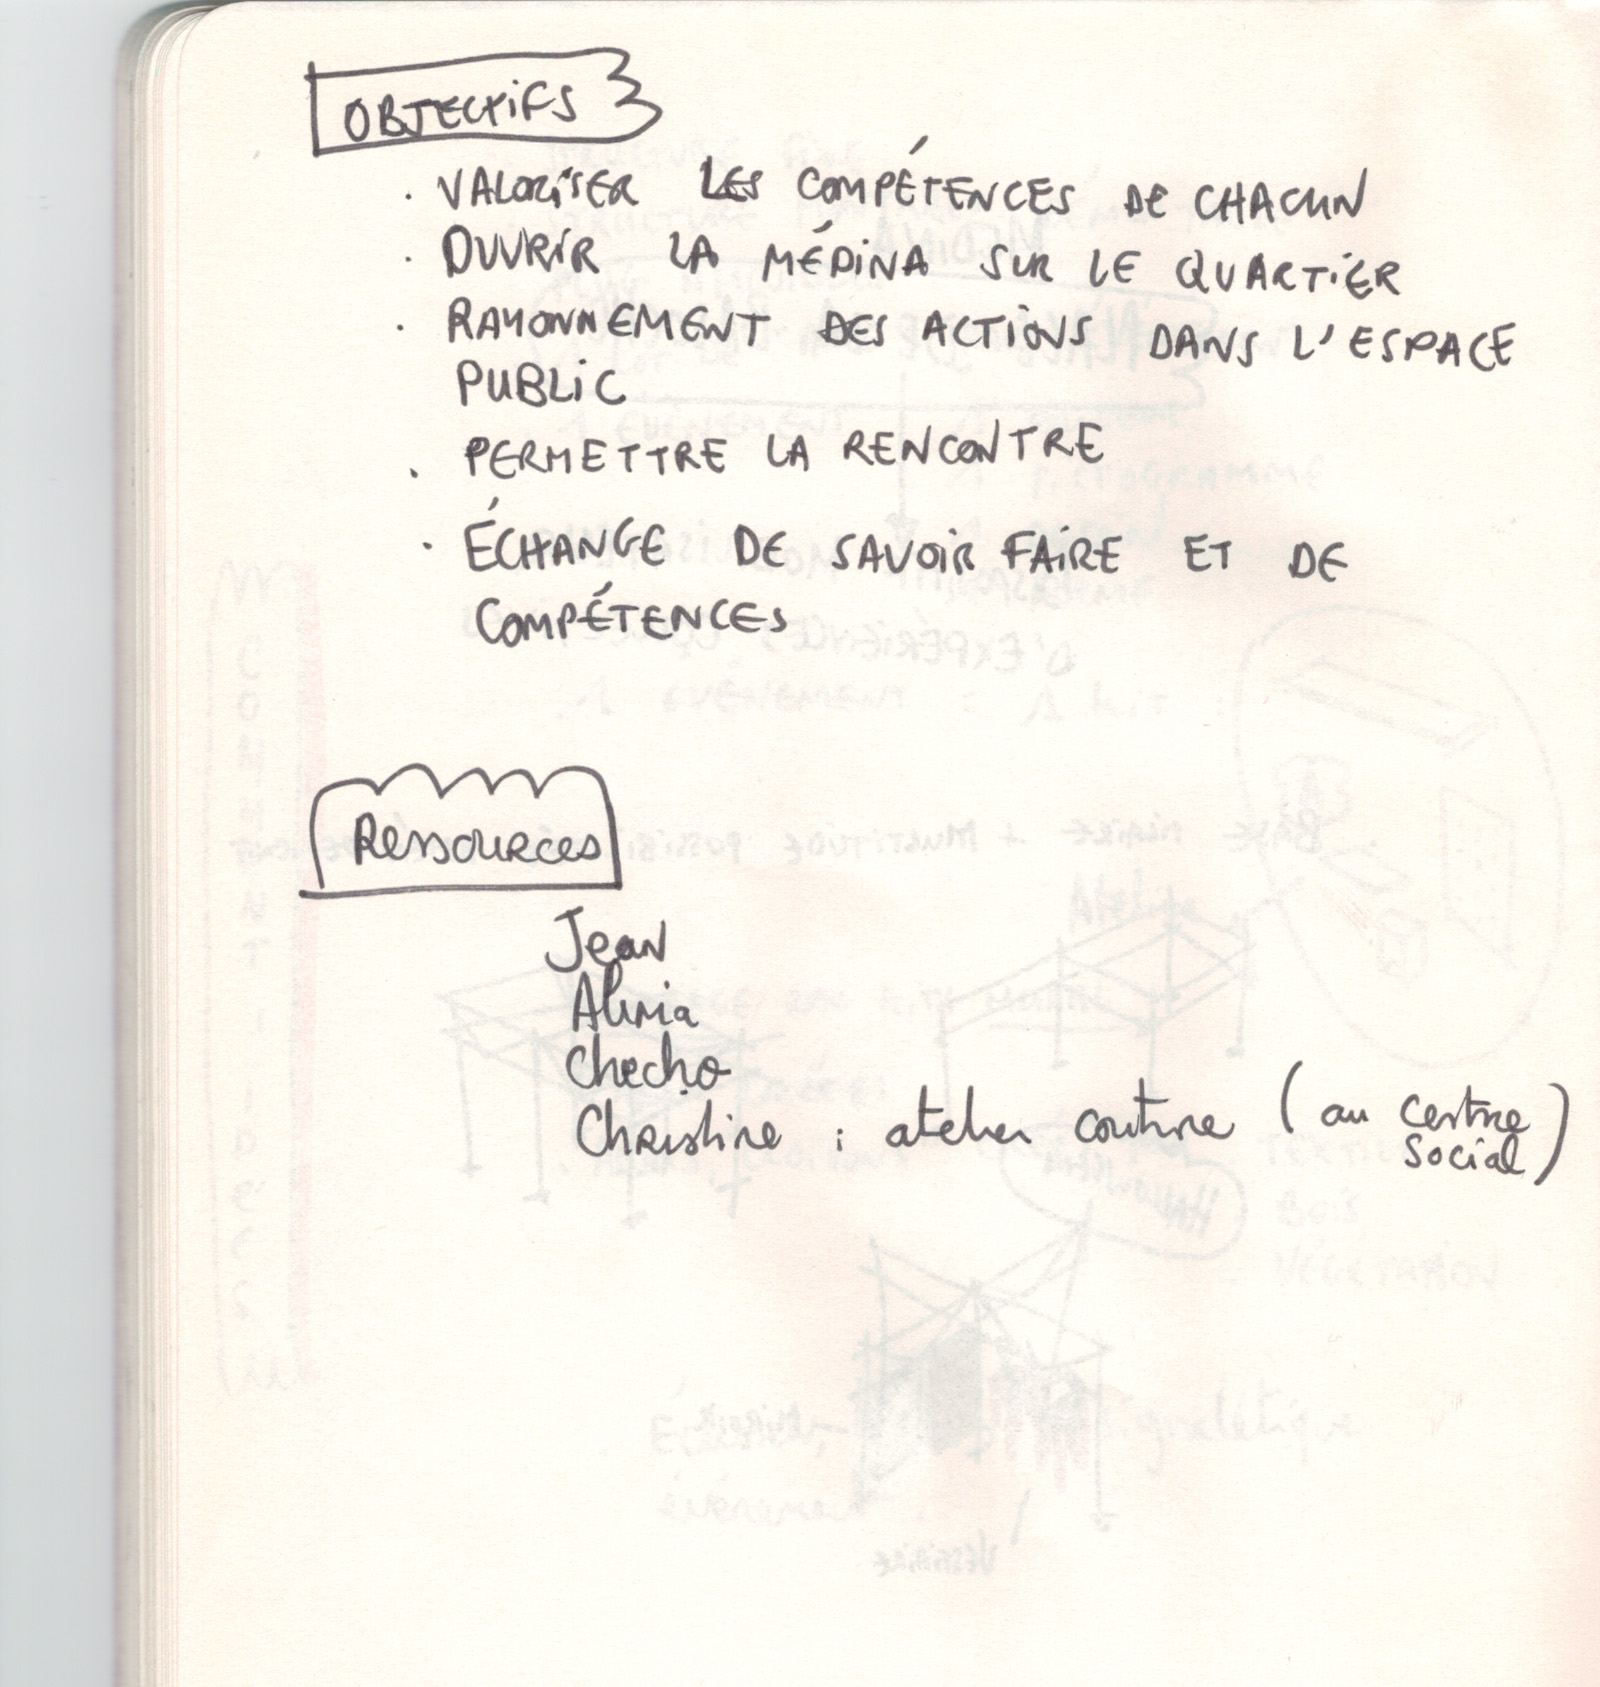 OBJECTIFS
. VALORISER LES COMPÉTENCES DE CHACUN
. OUVRIR LA MÉDINA SUR LE QUARTIER
. RAYONNEMENT DES ACTIONS DANS L'ESPACE
PUBLIC
. PERMETTRE LA RENCONTRE
. ÉCHANGE DE SAVOIR FAIRE ET DE
COMPÉTENCES
Ressources
Jean
Checho
Christine : atelier couture (au centre
social)